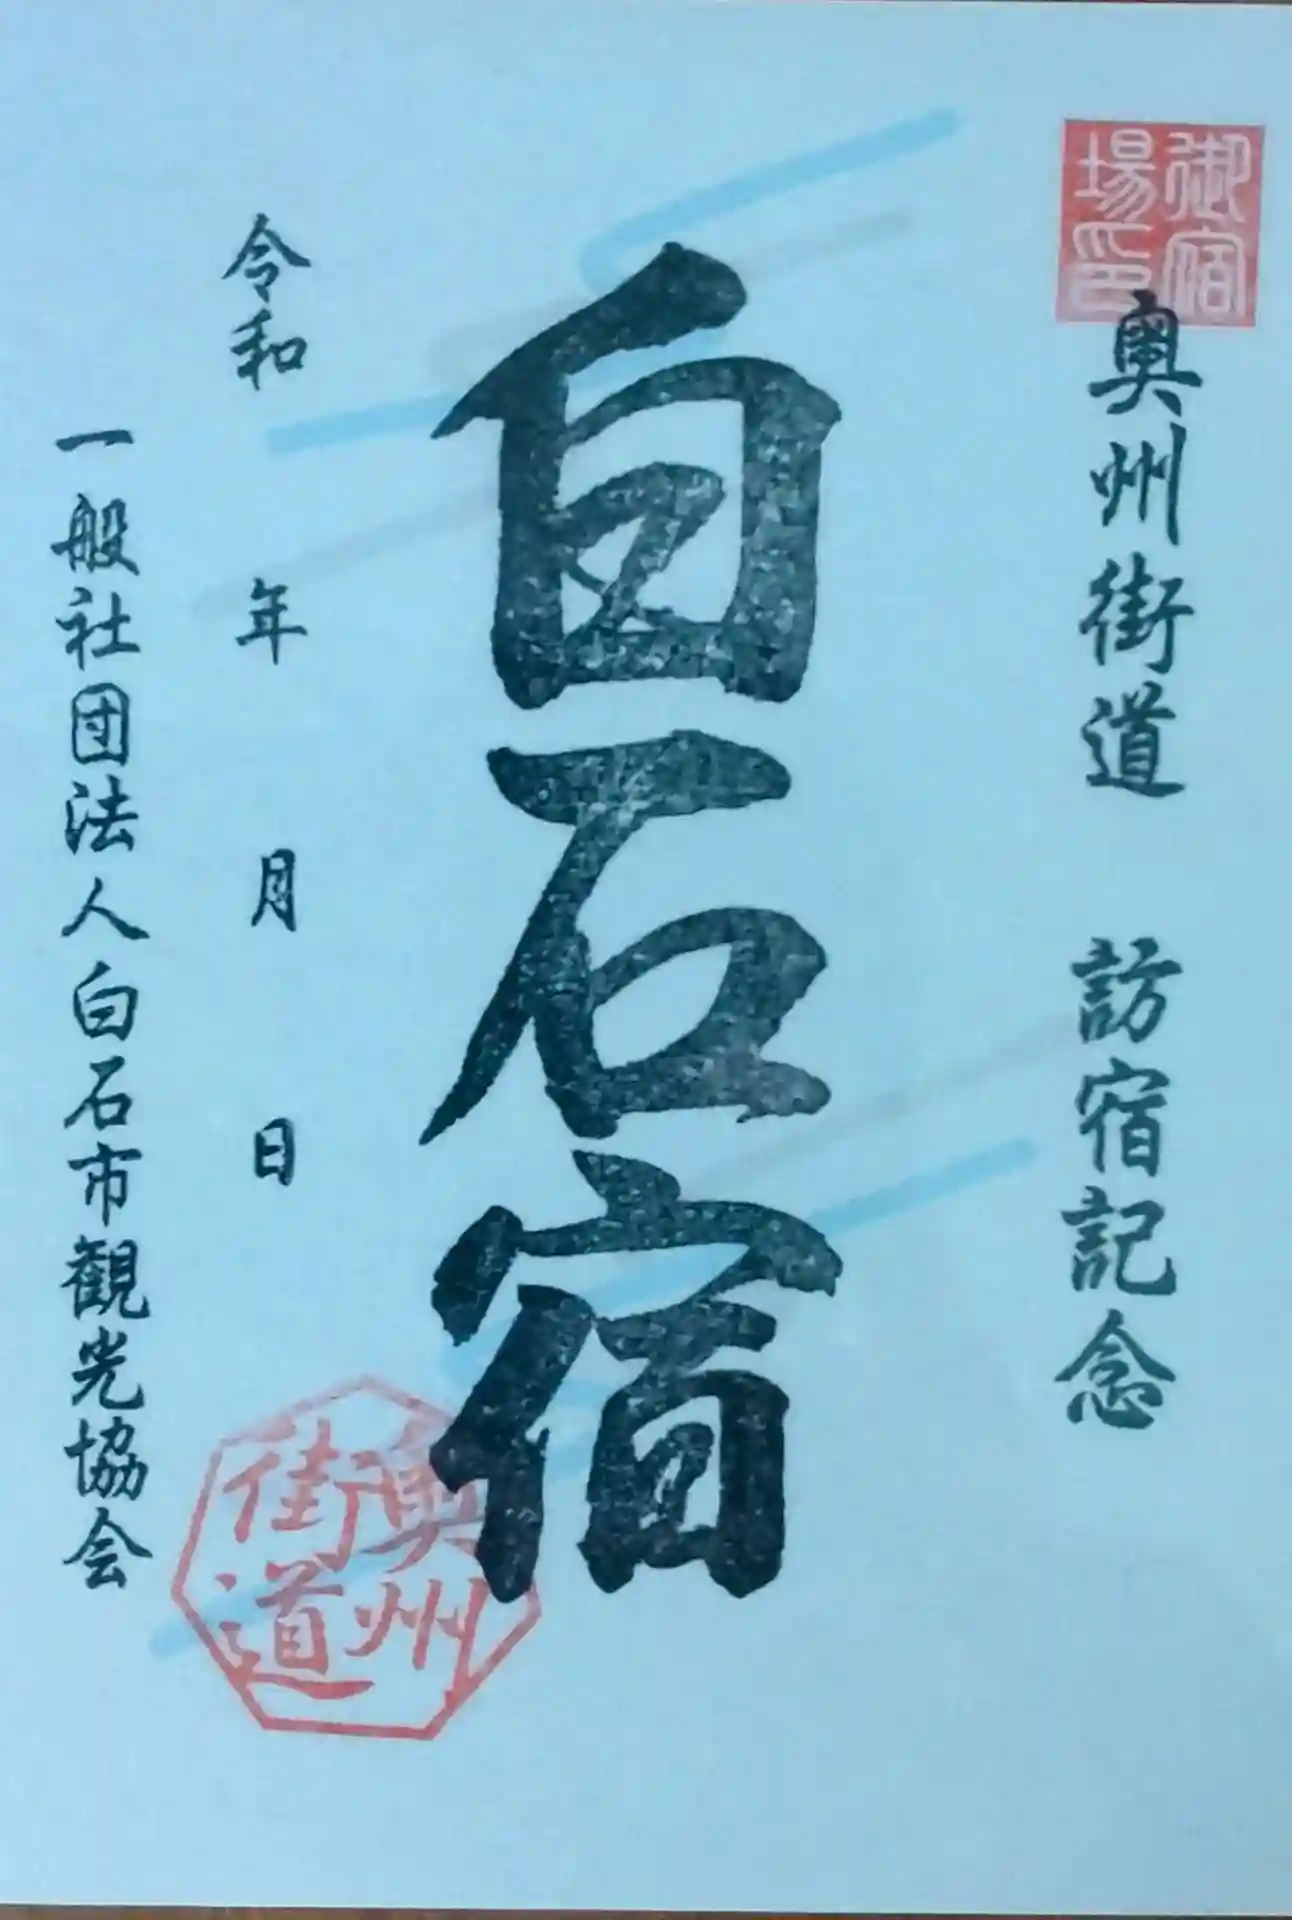 御宿
場印
奥州街道 訪宿記念
白石宿
令和 年 月 日
一般社団法人白石市観光協会
奥州
街道